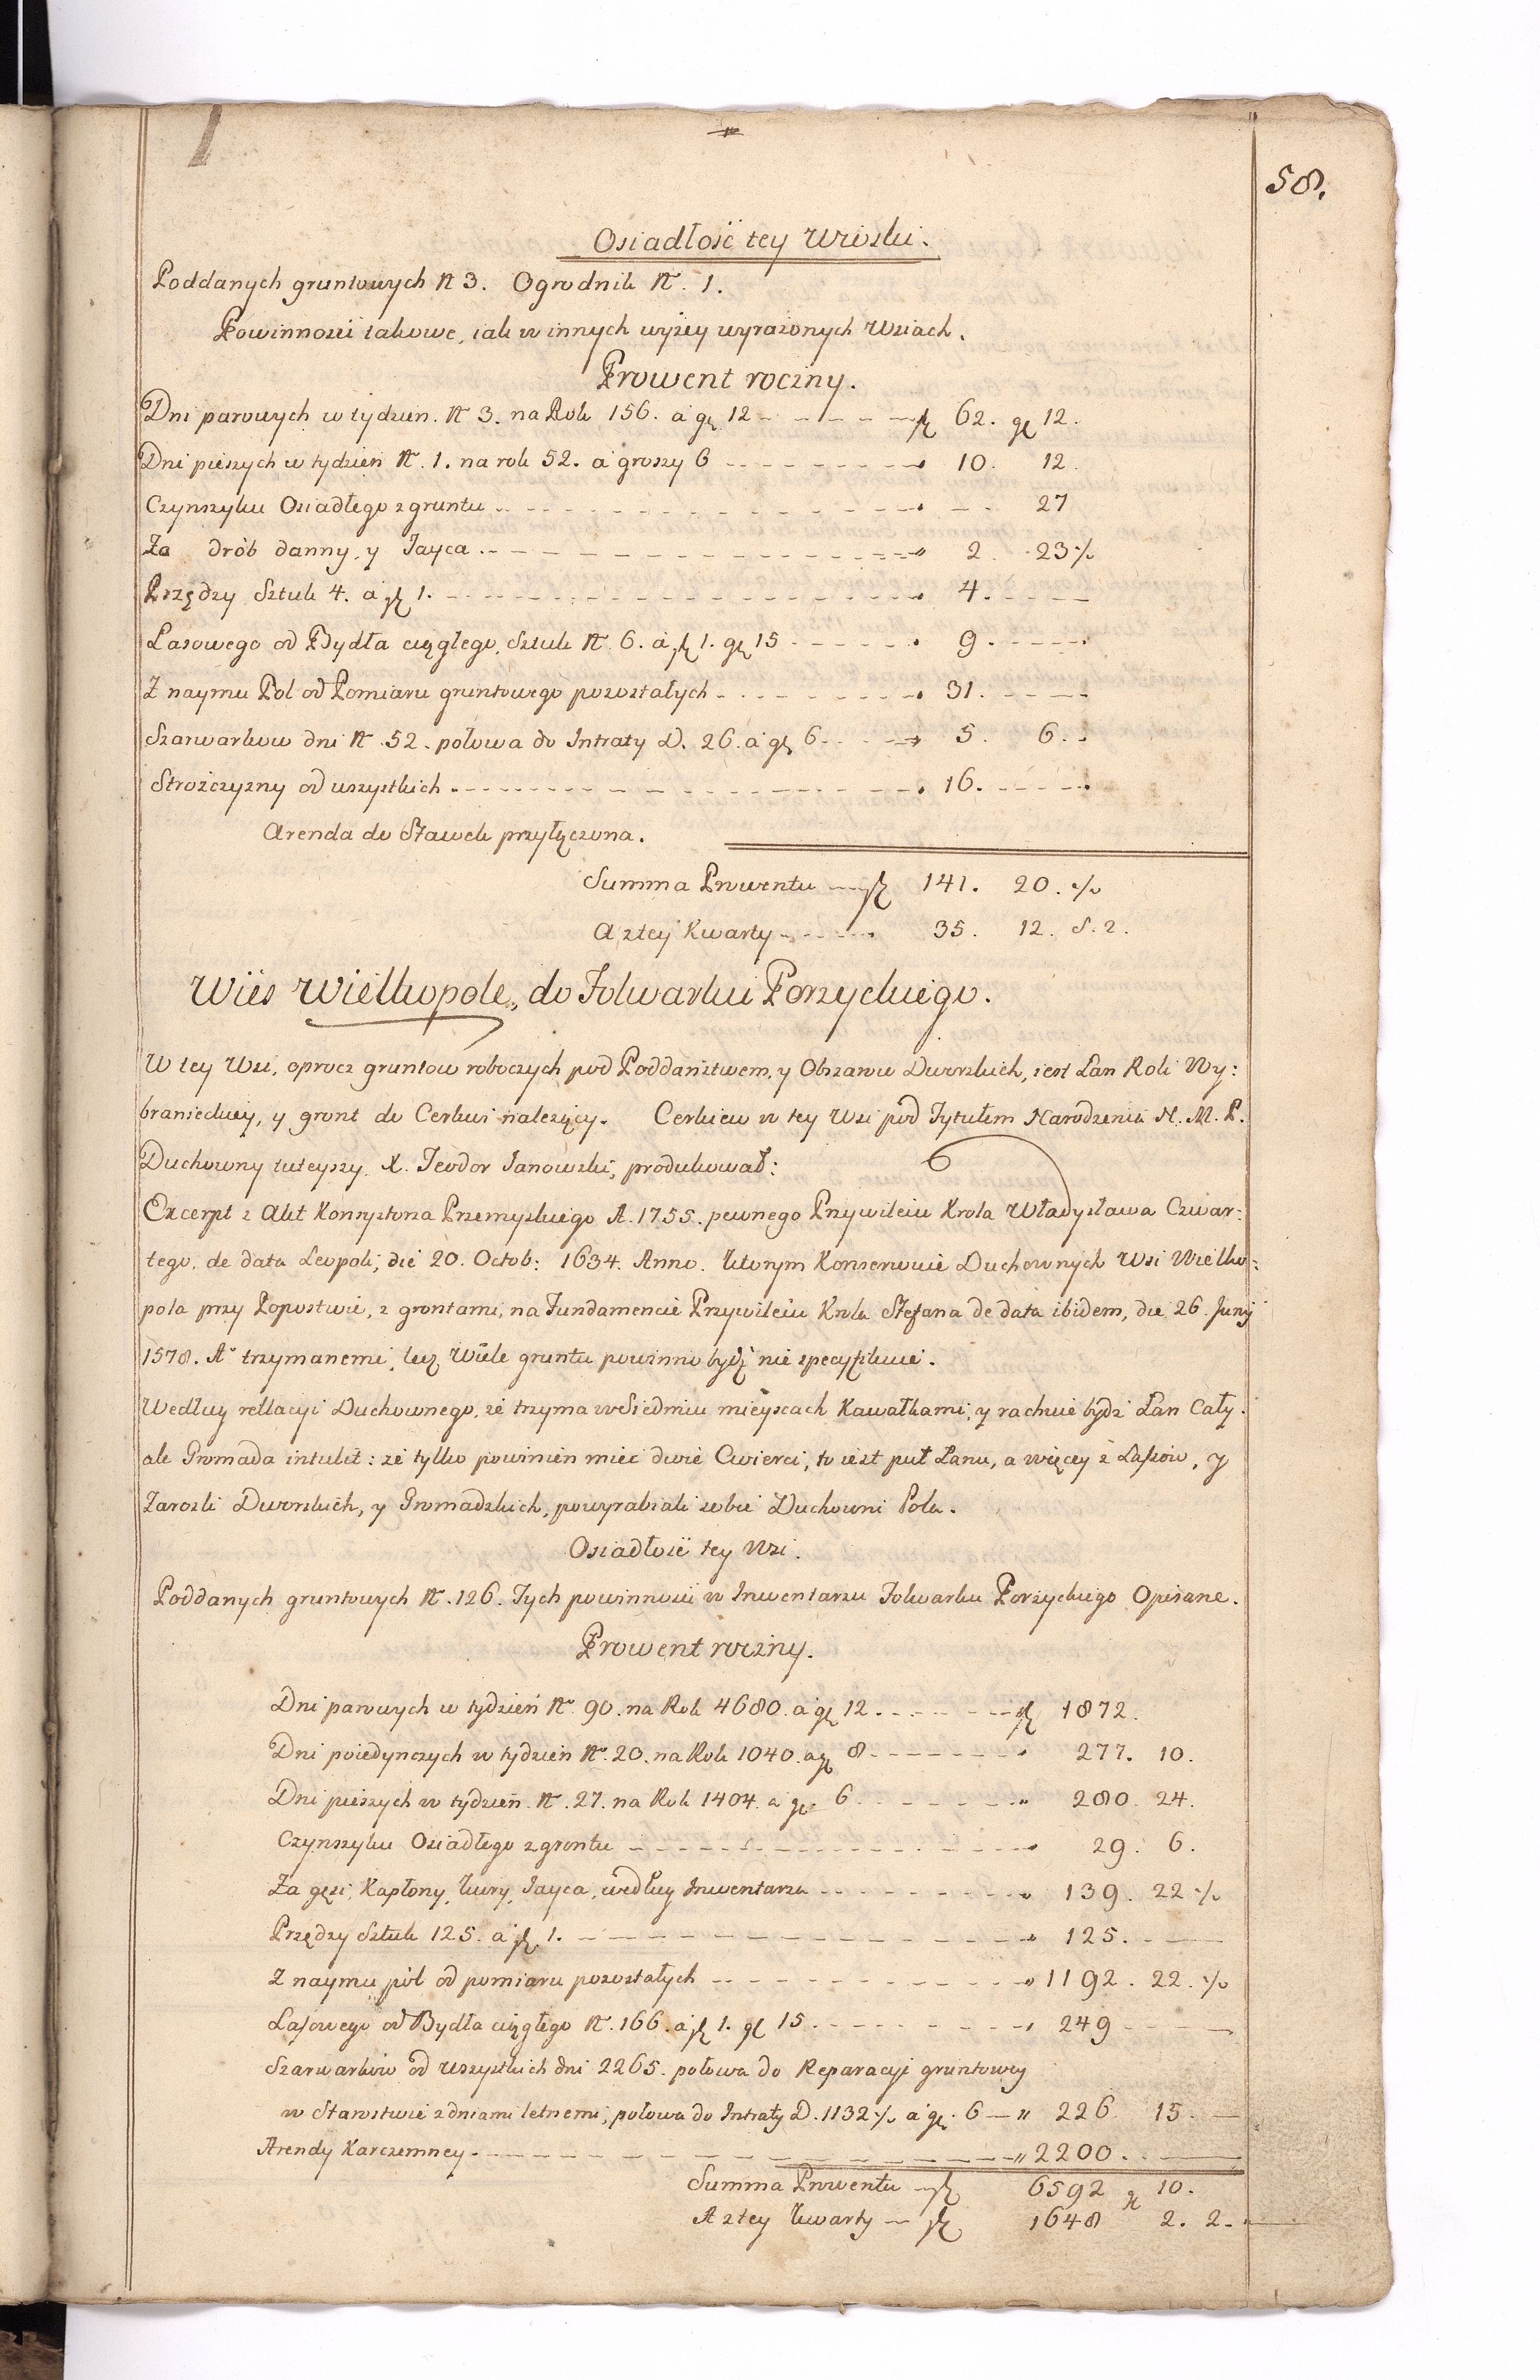 58.
Osiadłość tey Wioski.
Poddanych gruntowych N 3. Ogrodnik N. 1.
Powinności takowe, iak w innych wyżey wyrażonych Wsiach.
Prowent roczny.
Dni parowych w tydzien. N 3. na Rok 156. a gr 12 - - - - - zł 62. gr 12.
Dni pieszych w tydzień N. 1. na rok 52. a groszy 6 - - - - - " 10. 12.
Czynszyku Osiadłego z gruntu - - - - - " - - 27
Za drób danny, y Jayca - - - - - " 2. 23 ·/.
Przędzy Sztuk 4. a zł 1. - - - - - " 4. - - -
Lasowego od Bydła ciągłego, Sztuk N. 6. a zł 1. gr 15 - - - - - " 9. - - -
Z naymu Pol od Pomiaru gruntowego pozostałych - - - - - " 31. - - -
Szarwarkow dni N. 52. połowa do Intraty D. 26. a gr 6 - - - " 5. 6. -
Strożczyzny od wszystkich - - - - - " 16. - - -
Arenda do Stawek przyłączona.
Summa Prowentu - zł 141. 20. ·/.
A z tey Kwarty - - - " 35. 12. S. 2.
Wieś Wielkopole, do Folwarku Porzyckiego.
W tey Wsi, oprocz gruntow roboczych pod Poddaństwem, y Obszarow Dworskich, iest Łan Roli Wy:
branieckiey, y gront do Cerkwi należący. Cerkiew w tey Wsi pod Tytułem Narodzenia N. M. P.
Duchowny tuteyszy X. Teodor Janowski, produkował:
Excerpt z Akt Konsystorza Przemyskiego A. 1755. pewnego Przywileiu Krola Władysława Czwar:
tego, de data Leopoli, die 20. Octob: 1634. Anno. Ktorym Konserwuie Duchownych Wsi Wielko:
pola przy Popostwie, z grontami, na Fundamencie Przywileiu Krola Stefana de data ibidem, die 26. Junij
1578. A° trzymanemi, lecz Wiele gruntu powinno bydź nie specyfikuie.
Według rellacyi Duchownego, że trzyma w Siedmiu mieyscach Kawałkami, y rachuie bydź Łan Cały.
ale Gromada intulit: że tylko powinien mieć dwie Cwierci, to iest puł Łanu, a więcey z Lasow, y
Zarosli Dworskich, y Gromadzkich, powyrabiali sobie Duchowni Pola.
Osiadłość tey Wsi.
Poddanych gruntowych N. 126. Tych powinności w Inwentarzu Folwarku Porzyckiego Opisane.
Prowent roczny.
Dni parowych w tydzień N. 90. na Rok 4680. a gr 12. - - - - - zł 1872.
Dni poiedynczych w tydzień N. 20. na Rok 1040. a gr 8 - - - - - " 277. 10.
Dni pieszych w tydzień N. 27. na Rok 1404. a gr 6 - - - - - " 280. 24.
Czynszyku Osiadłego z grontu - - - - - " 29. 6.
Za gęsi, Kapłony, Kury, Jayca, według Inwentarza - - - - - " 139. 22 ·/.
Przędzy Sztuk 125. a zł 1. - - - - - " 125. - -
Z naymu pól od pomiaru pozostałych - - - - - " 1192. 22. ·/.
Lasowego od Bydła ciągłego N. 166. a zł 1. gr 15 - - - - - " 249 - - -
Szarwarków od wszystkich dni 2265. połowa do Reparacyi gruntowey
w Starostwie z dniami letnemi, połowa do Intraty D. 1132 ·/. a gr. 6 — " 226 15. —
Arendy Karczemney - - - - - " 2200. - —
Summa Prowentu - zł 6592 gr 10.
A z tey Kwarty — zł 1648 2. 2. -